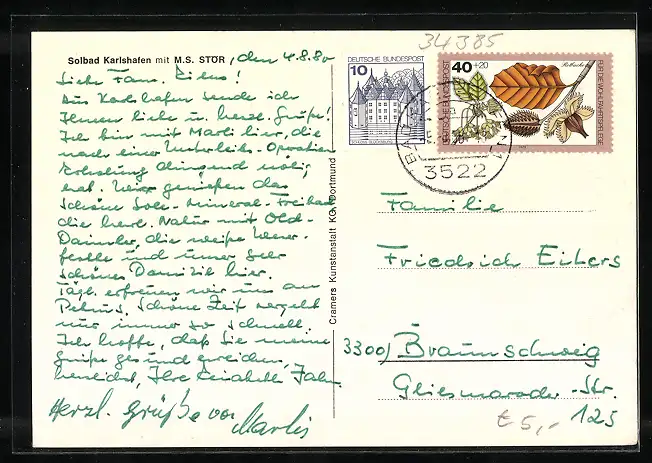 34385
Solbad Karlshafen mit M.S. STOR, den 4.8.80
Liebe Fam. Eilers!
Aus Karlshafen sende ich
Ihnen liebe u. herzl. Grüße!
Ich bin mit Marli hier, die
nach einer Unterleibs-Operation
Erholung dringend nötig
hat. Wir genießen das
schöne Sole-Mineral-Freibad
die herl. Natur mit Old-
Daimler, die weiße Weser-
flotte und unser sehr
schönes Domizil hier.
Tägl. erfreuen wir uns an
schöne Zeit vergeht
nur immer so schnell.
Ich hoffe, daß Sie meine
Grüße gesund erreichen,
Ihre
Herzl. Grüße von
Marlis
Cramers Kunstanstalt KG, Dortmund
DEUTSCHE BUNDESPOST
10
SCHLOSS GLÜCKSBURG
DEUTSCHE BUNDESPOST
40+20
Rotbuche
FÜR DIE WOHLFAHRTSPFLEGE
3522
Familie
Friedrich Eilers
3300 Braunschweig
Gliesmaroder-Str.
125
€ 5,-